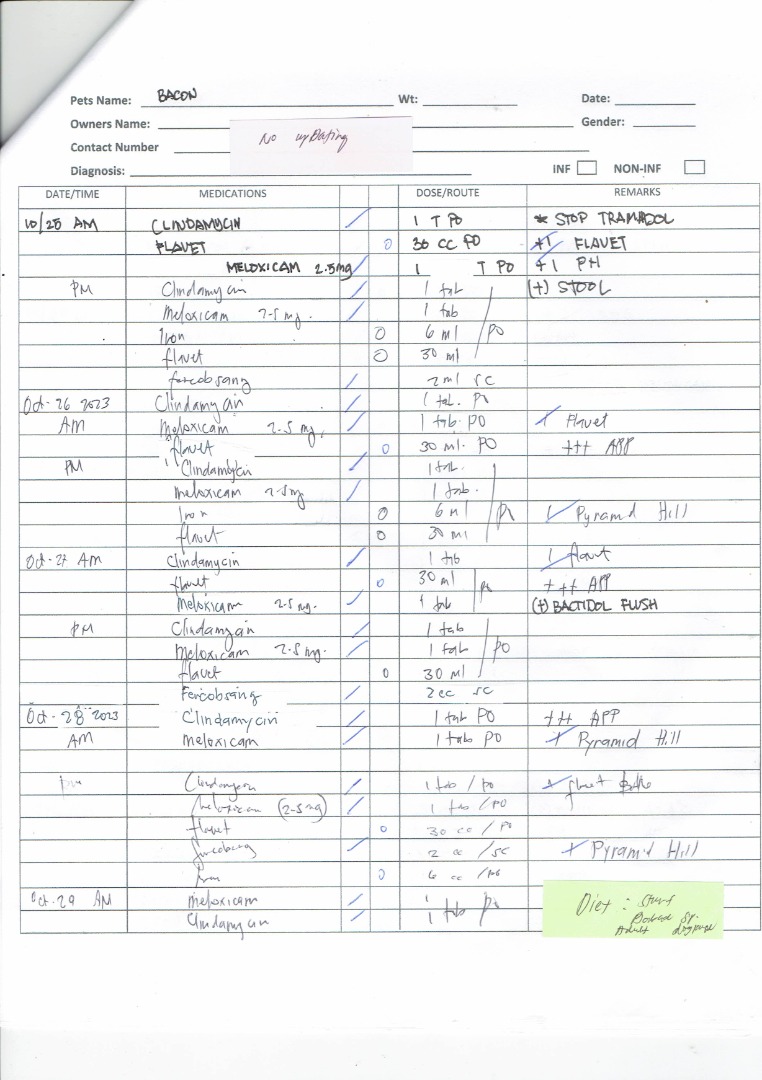 Pets Name: BACON Wt: Date:
Owners Name: Gender:
No upDating
Contact Number
Diagnosis: INF NON-INF
DATE/TIME MEDICATIONS DOSE/ROUTE REMARKS
10/25 AM CLINDAMYCIN 1 T PO * STOP TRAMADOL
FLAVET 30 CC PO +1 FLAVET
MELOXICAM 2.5mg 1 T PO +1 PH
PM Clindamycin 1 tab (+) STOOL
Meloxicam 2.5 mg. 1 tab
Iron 6 ml PO
flavet 30 ml
fercobsang 2ml SC
Oct. 26 2023 Clindamycin 1 tab. PO
AM Meloxicam 2.5 mg. 1 tab. PO + Flavet
flavet 30 ml. PO +++ APP
PM Clindamycin 1 tab.
meloxicam 2.5mg 1 tab.
Iron 6 ml PO Pyramid Hill
flavet 30 ml
Oct. 27 AM Clindamycin 1 tab flavet
flavet 30 ml PO +++ APP
Meloxicam 2.5 mg. 1 tab (+) BACTIDOL FLUSH
PM Clindamycin 1 tab
Meloxicam 2.5 mg. 1 tab PO
flavet 30 ml
Fercobsang 2cc SC
Oct. 28 2023 Clindamycin 1 tab PO +++ APP
AM Meloxicam 1 tab PO + Pyramid Hill
pm Clindamycin 1 tab / PO +
Meloxicam (2.5mg) 1 tab / PO
flavet 30 cc / PO
fercobsang 2 cc / SC + Pyramid Hill
Iron 6 cc / PO
Oct. 29 AM meloxicam 1 tab PO
Clindamycin
Diet :
Adult